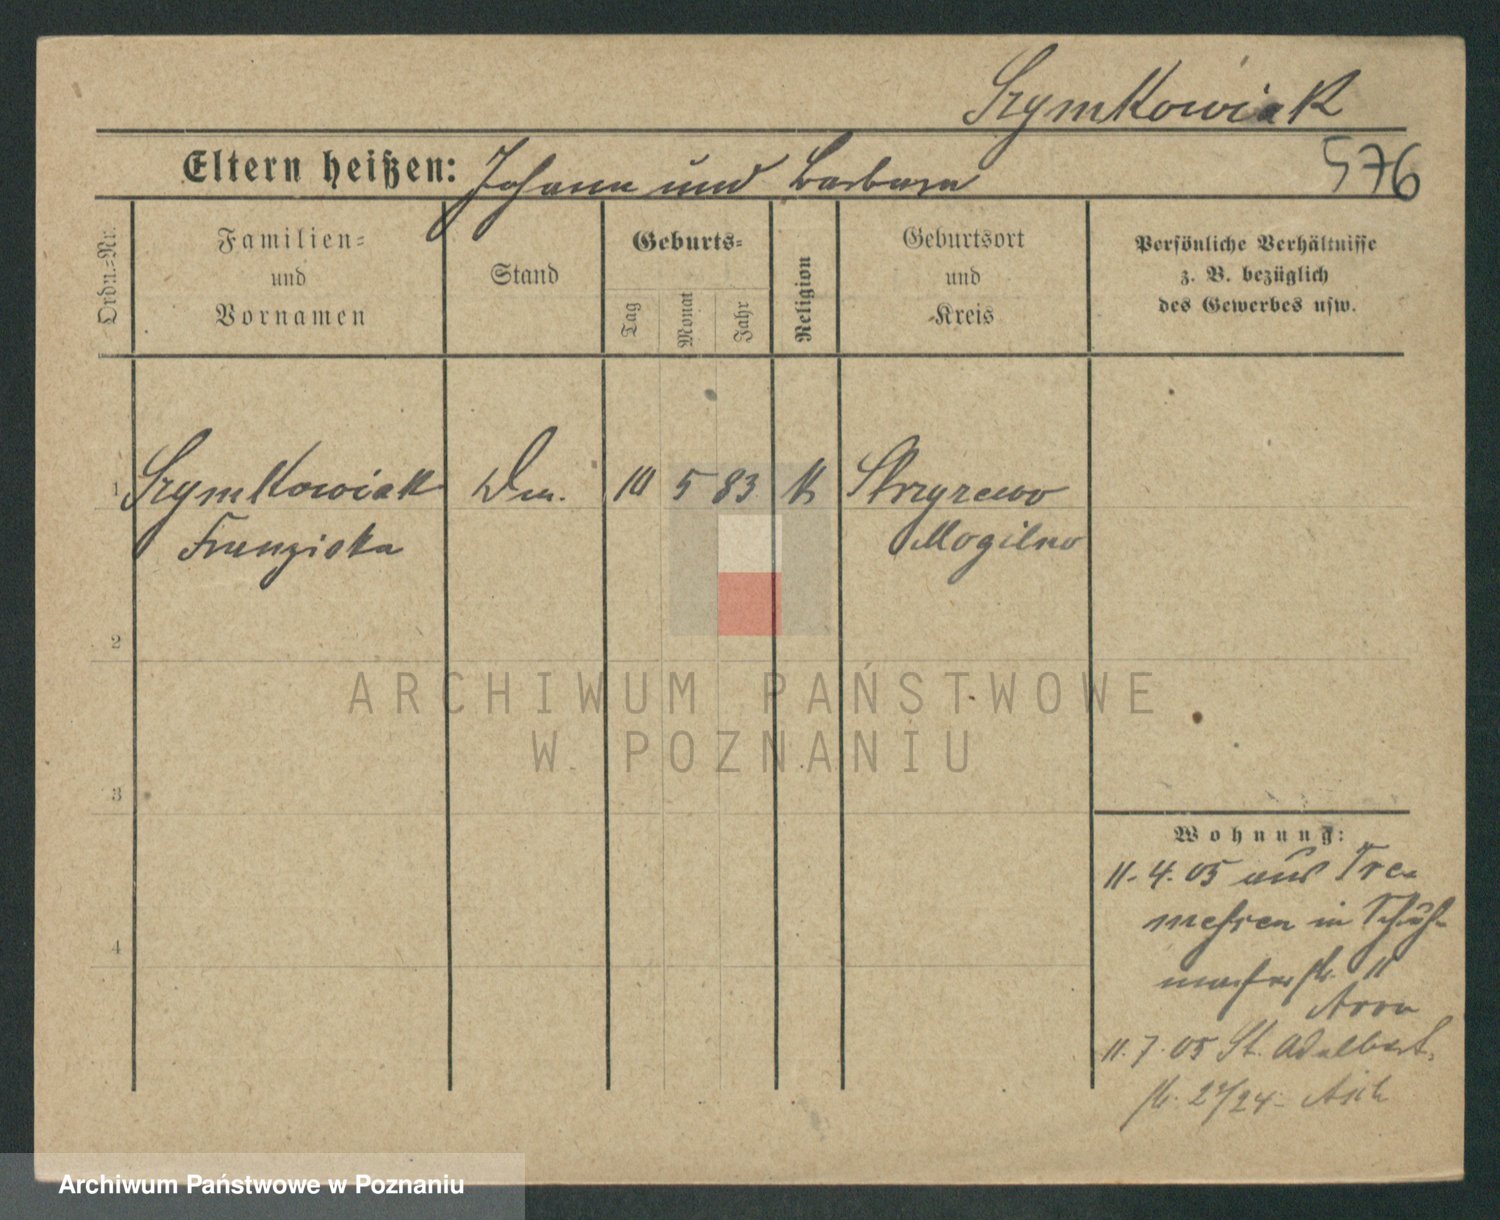 Szymkowiak
576
Eltern heißen: Johann und Barbara
Ordn.=Nr.
Familien=
und
Vornamen
Stand
Geburts=
Tag
Monat
Jahr
Religion
Geburtsort
und
Kreis
Persönliche Verhältnisse
z. B. bezüglich
des Gewerbes usw.
1 Szymkowiak Dm. 10 5 83 K Skrzyzewo
Franziska Mogilno
2
3
4
Wohnung:
11. 4. 05 aus Tre=
messen in Schuh=
macherstr. 11
11. 7. 05 St. Adalbert=
str. 23/24
ARCHIWUM PAŃSTWOWE
W POZNANIU
Archiwum Państwowe w Poznaniu